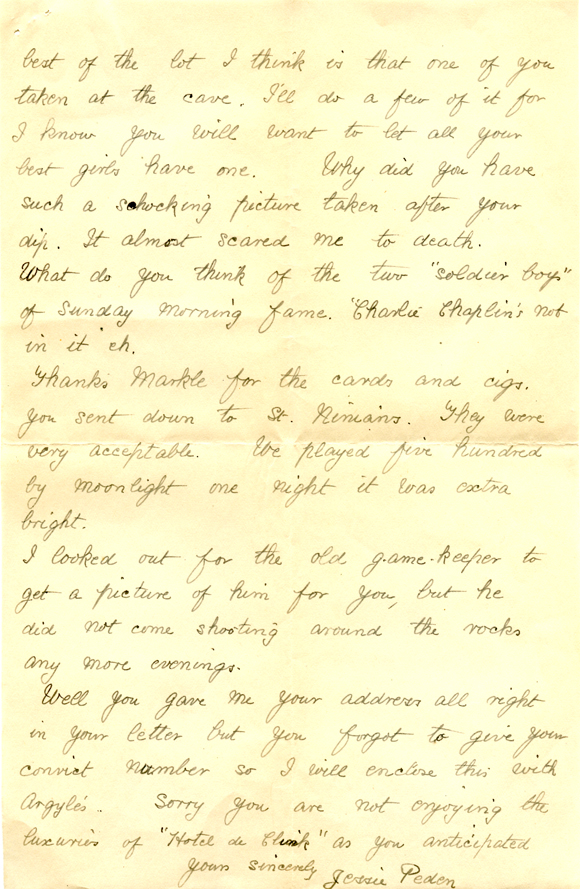 best of the lot I think is that one of you
taken at the cave. I'll do a few of it for
I know you will want to let all your
best girls have one. Why did you have
such a schocking picture taken after your
dip. It almost scared me to death.
What do you think of the two "soldier boys"
of Sunday morning fame. "Charlie Chaplin's not
in it" eh.
Thanks Markle for the cards and cigs.
you sent down to St. Ninians. They were
very acceptable. We played five hundred
by moonlight one night it was extra
bright.
I looked out for the old game-keeper to
get a picture of him for you, but he
did not come shooting around the rocks
any more evenings.
Well you gave me your address all right
in your letter but you forgot to give your
convict number so I will enclose this with
Argyle's. Sorry you are not enjoying the
luxuries of "Hotel de Clink" as you anticipated
yours sincerely Jessie Peden